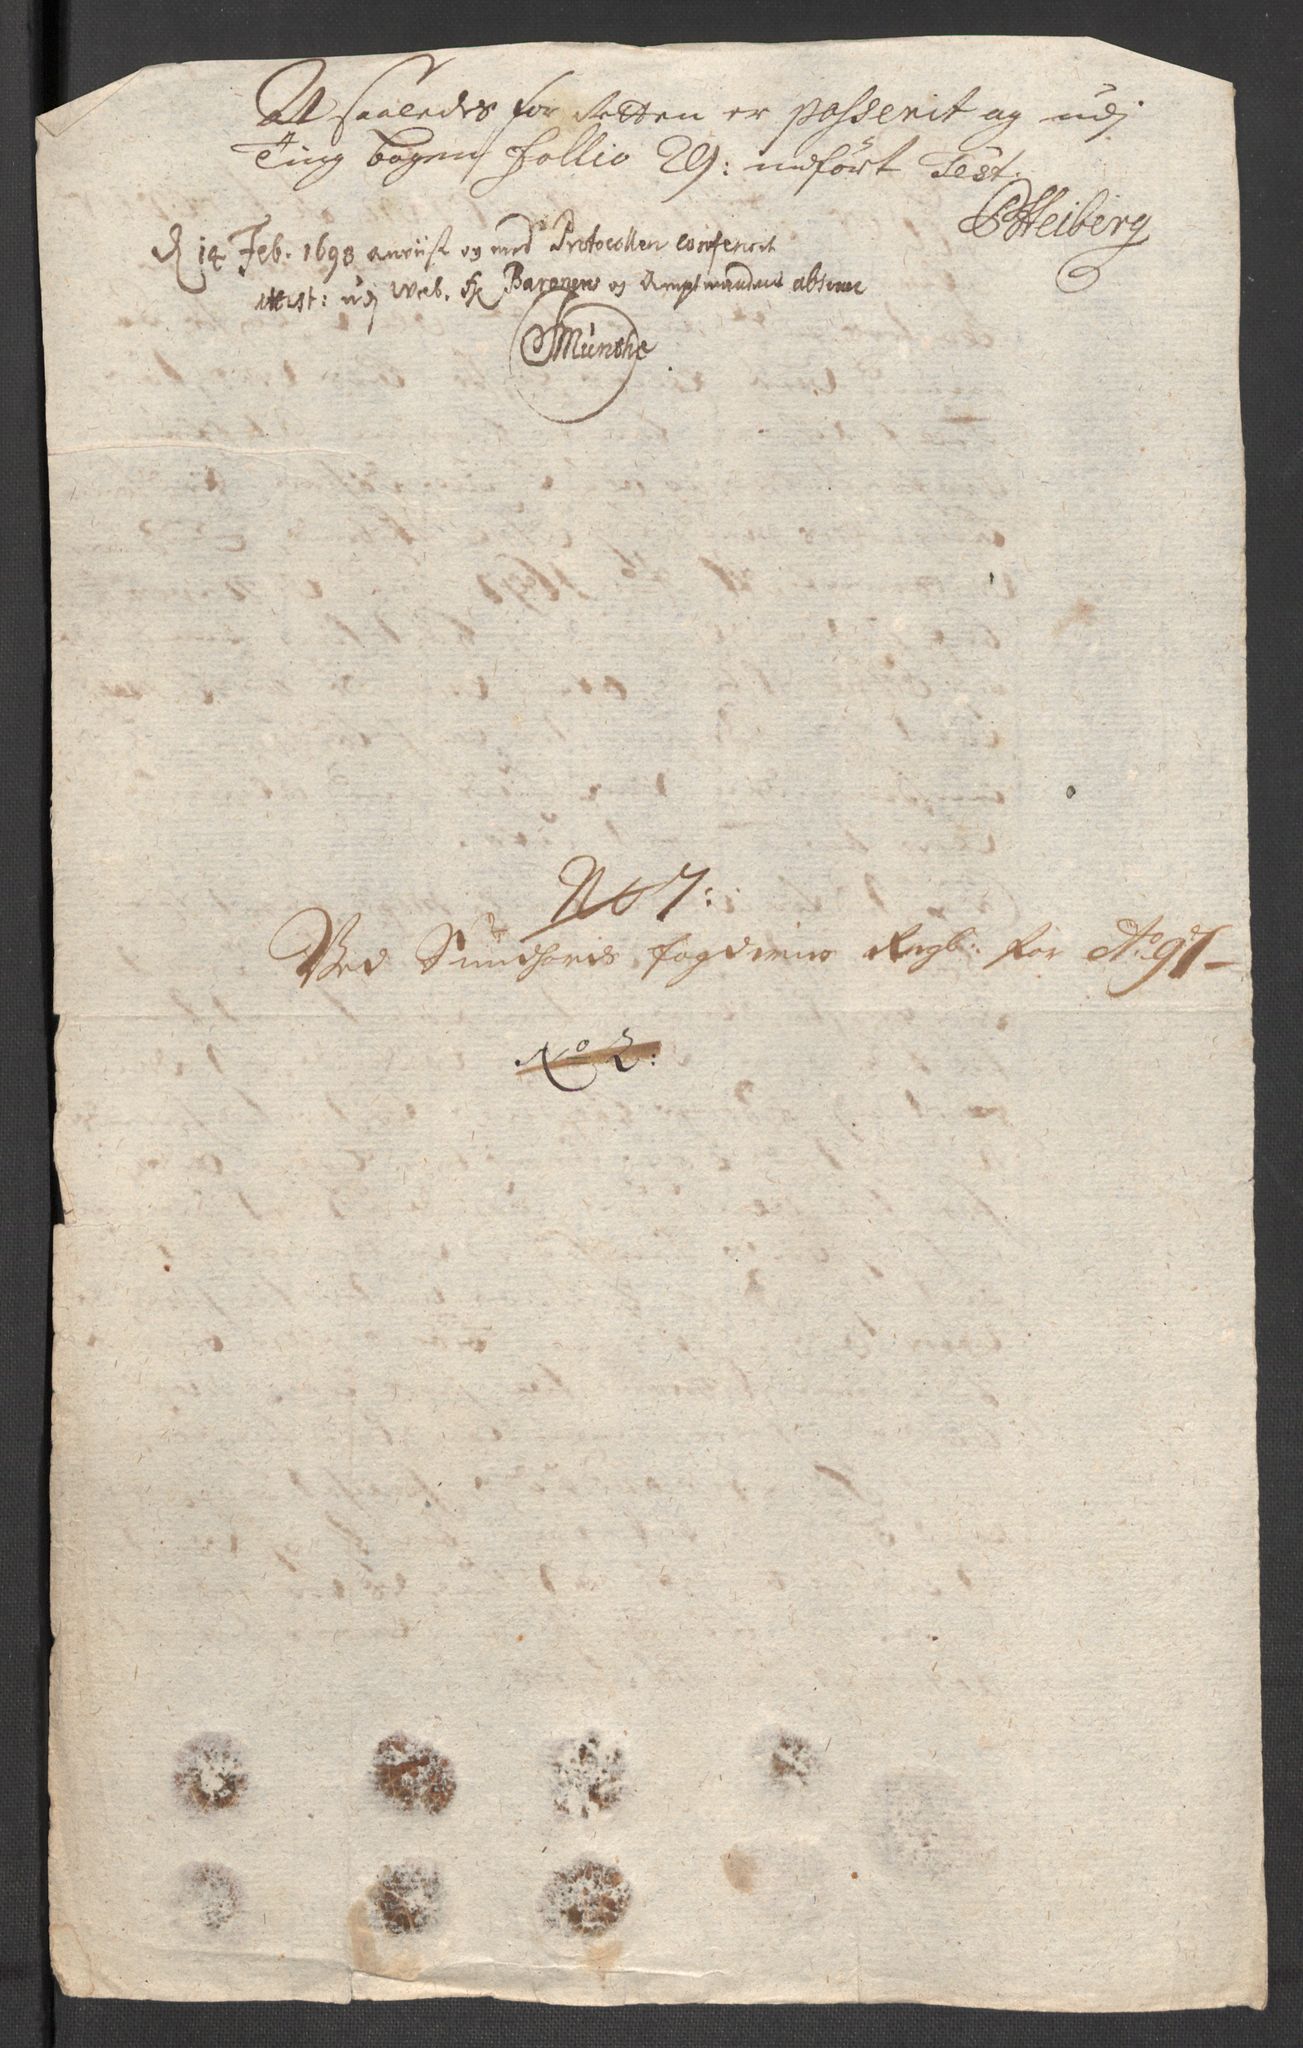 At saaledes for Retten er passerit og udj
Ting bogen follio 29: indført Test.
PHeiberg
D 14 Feb. 1698 anviist og med Protocollen conferert
attest: udj Welb. Hr Baronens og Amptmandens absence
Munthe
No 7:
Ved Sundhords fogderies Regb: for Ao 97
No 2: